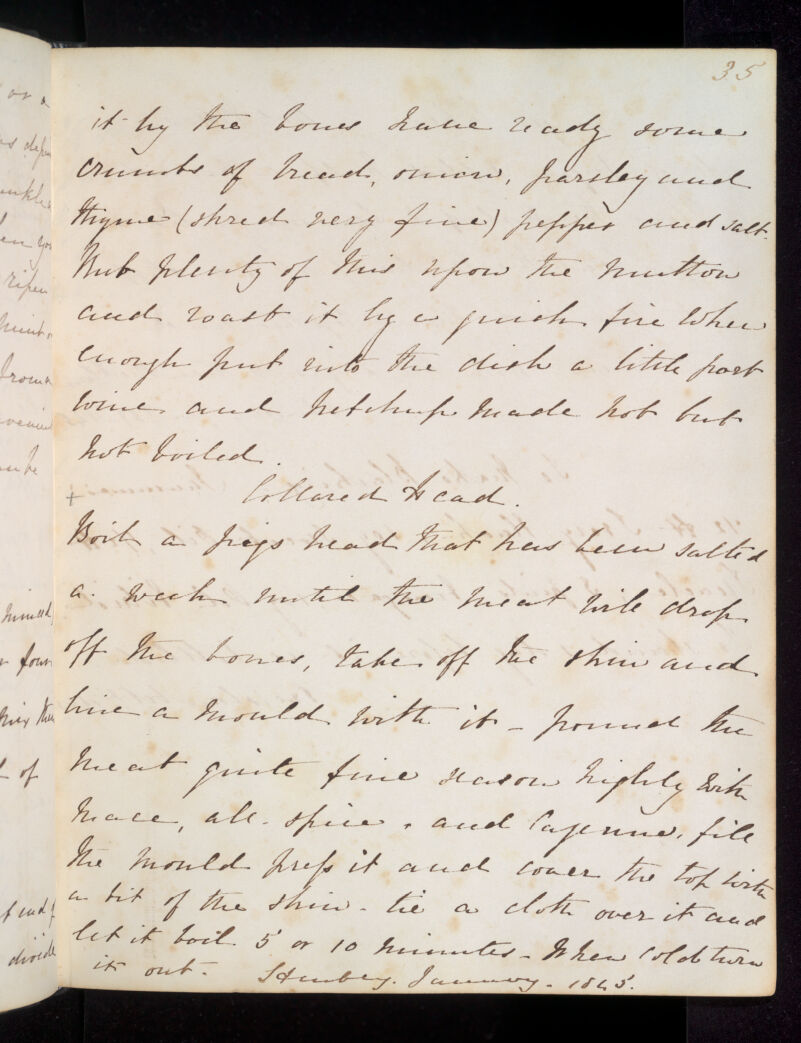 35
it by the bones have ready some
crumbs of bread, onion, parsley and
thyme (shred very fine) pepper and salt.
Rub plenty of this upon the mutton
and roast it by a quick fire when
enough put into the dish a little port
wine and ketchup made hot but
not boiled.
+ Collared Head.
Boil a pigs head that has been salted
a week until the meat will drop
off the bones, take off the skin and
line a mould with it - pound the
meat quite fine season highly with
mace, all-spice, and Cayenne, fill
the mould press it and cover the top with
a bit of the skin - tie a cloth over it and
let it boil 5 or 10 minutes - When cold turn
it out. January. 1845.
or a
ripen
from
be
minced
four
mix the
of
divide